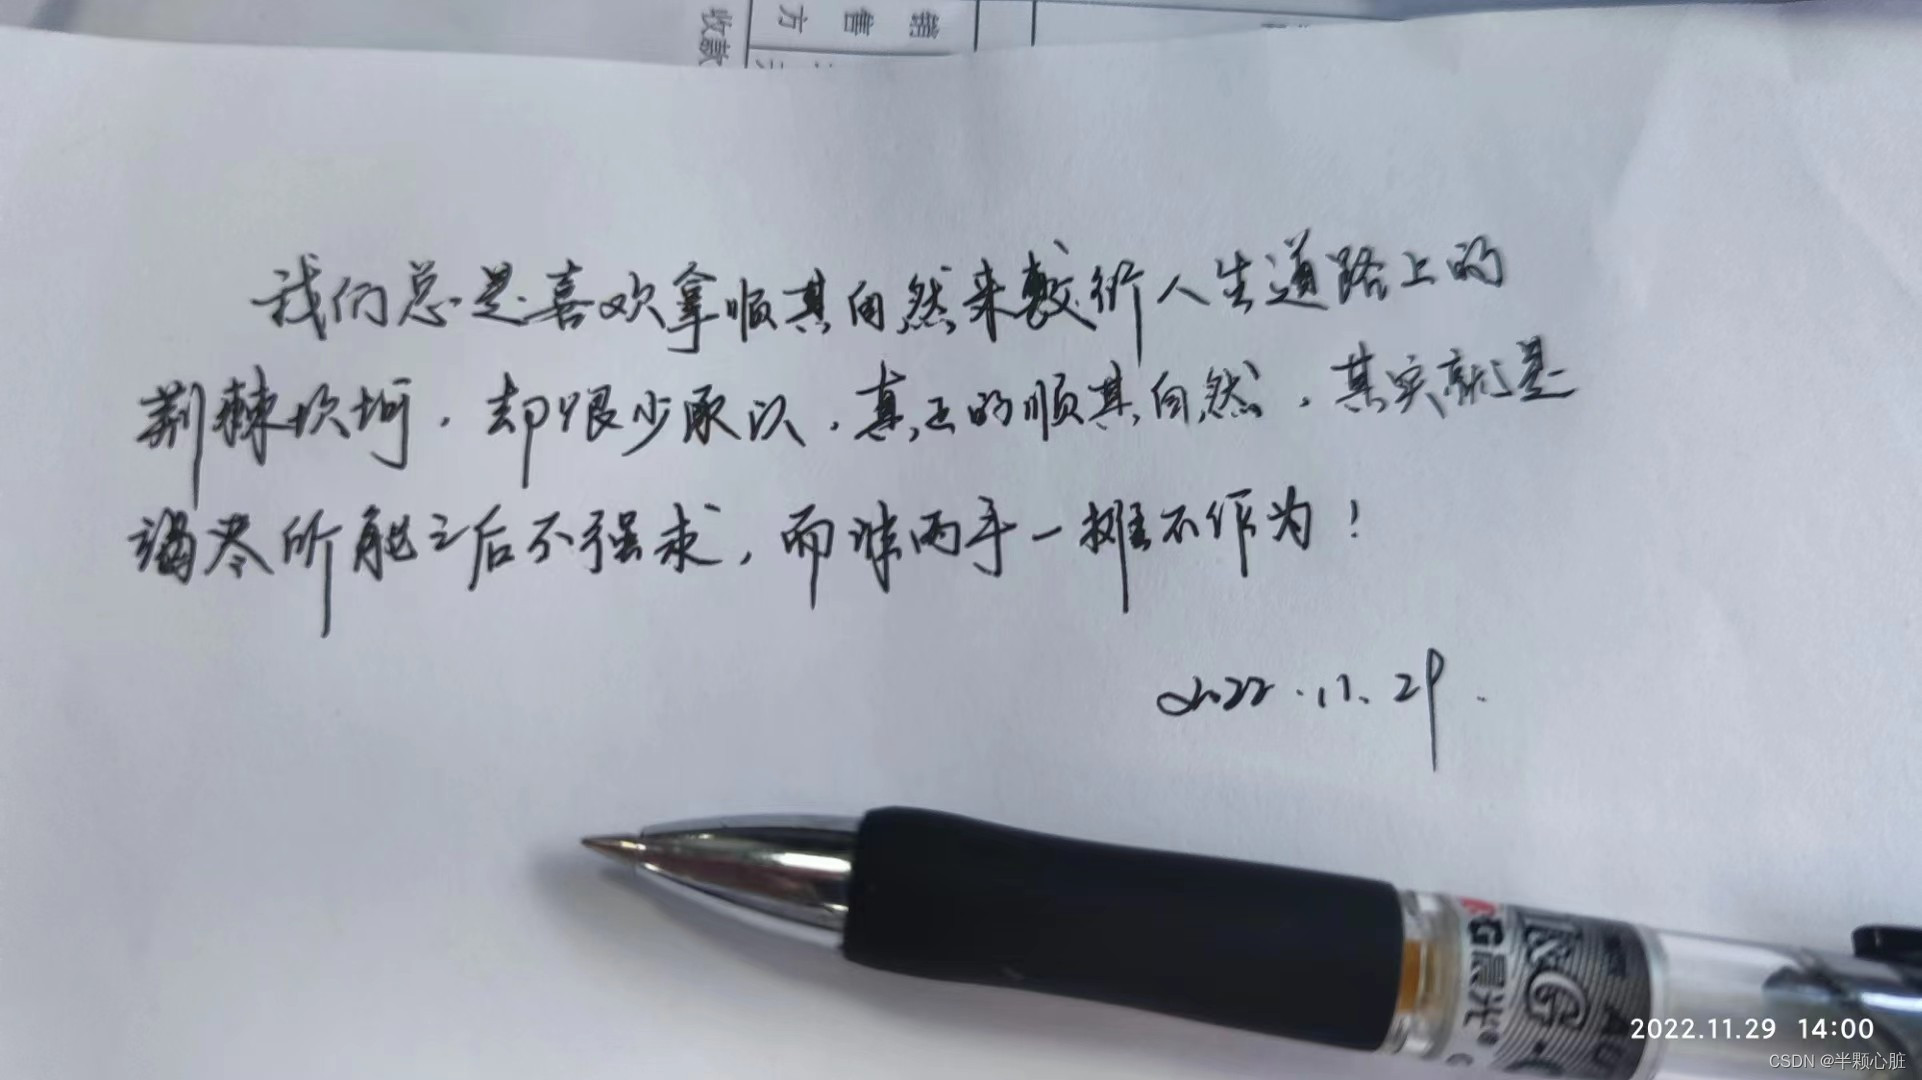 收款
方
售
销
我们总是喜欢拿顺其自然来敷衍人生道路上的
荆棘坎坷,却很少承认,真正的顺其自然,其实就是
竭尽所能之后不强求,而非两手一摊不作为!
2022.11.29.
M&G晨光
2022.11.29 14:00
CSDN @半颗心脏